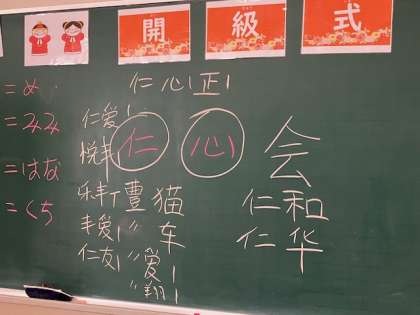 開 級 式
仁心正
= め
= みみ
= はな
= くち
仁爱
仁 心
悦丰
乐丰 豊 猫
丰爱 〃 车
仁友 〃 爱
〃 翔
会
仁和
仁华